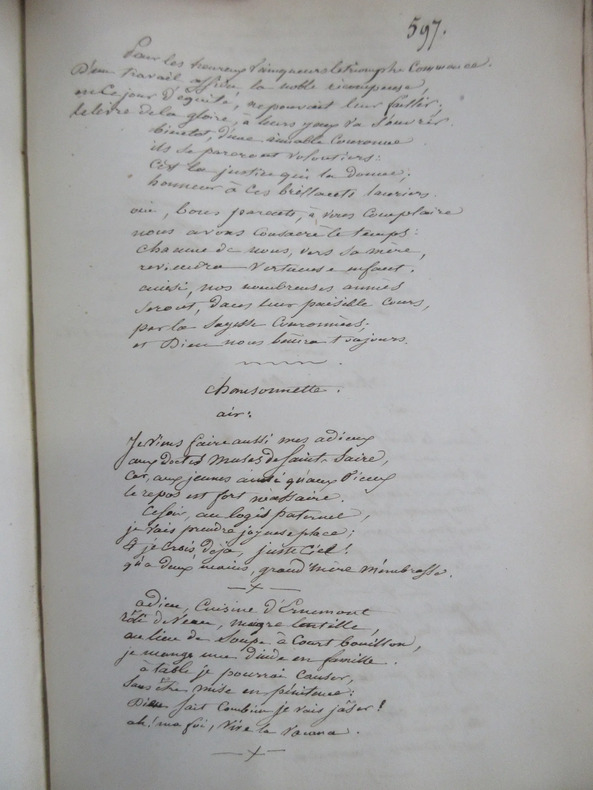 597.
Pour les heureux vainqueurs le triomphe commence.
D'un travail assidu, la noble récompense,
en ce jour d'équité, ne pouvait leur faillir;
le livre de la gloire, à leurs yeux va s'ouvrir.
bientôt, d'une aimable couronne
ils se pareront volontiers:
C'est la justice qui la donne;
honneur à ces brillants lauriers.
oui, bons parents, à vous complaire
nous avons consacré le temps:
chacune de nous, vers sa mère,
reviendra vertueuse enfant.
ainsi, nos nombreuses années
seront, dans leur paisible cours,
par la sagesse couronnées;
et Dieu nous bénira toujours.
chansonnette.
air:
Je viens faire aussi mes adieux
aux doctes Muses de Saint-Saire,
car, aux jeunes aussi qu'aux vieux
le repos est fort nécessaire.
Ce soir, au logis paternel,
je vais prendre joyeuse place;
Et je crois, déjà, juste Ciel!
qu'à deux mains, grand'mère m'embrasse.
adieu, Cuisine d'Ernemont
rôti de veau, maigre lentille,
au lieu de soupe à court bouillon,
je mange une dinde en famille.
à table je pourrai causer,
sans être mise en pénitence;
Dieu sait combien je vais jâser!
ah! ma foi, vive la vacance.